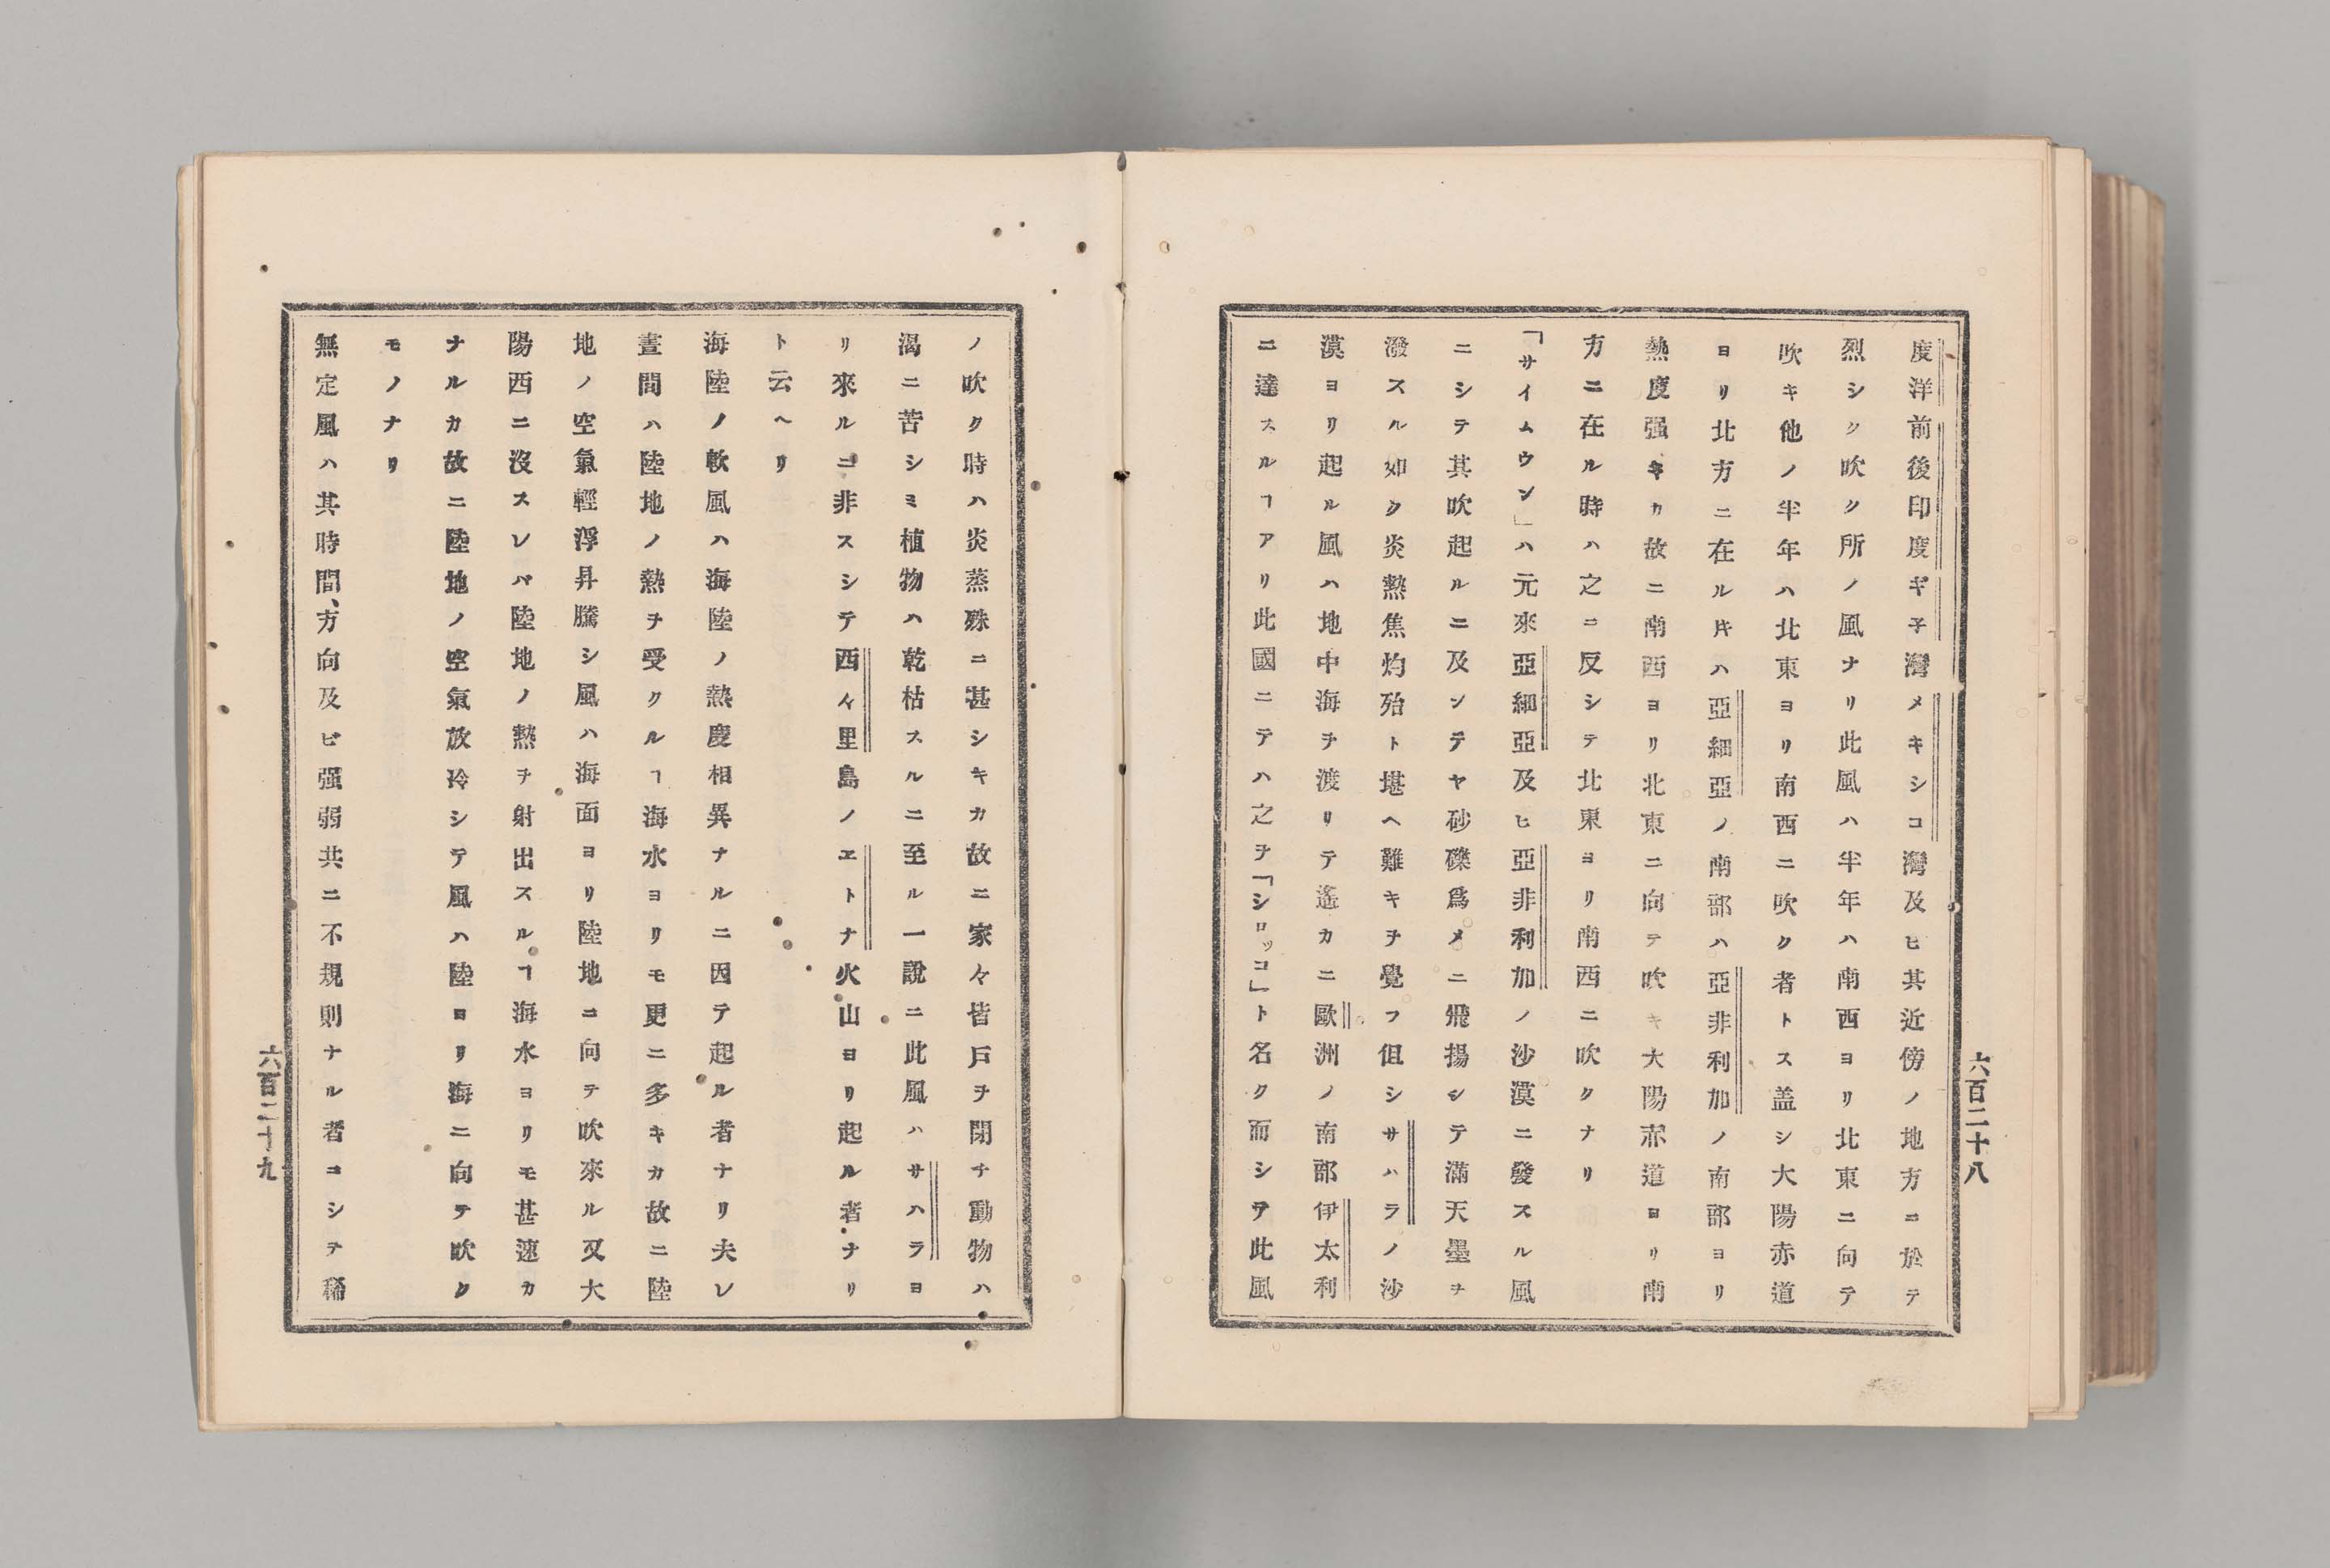 度洋前後印度ギ子灣メキシコ灣及ヒ其近傍ノ地方ニ於テ
烈シク吹ク所ノ風ナリ此風ハ半年ハ南西ヨリ北東ニ向テ
吹キ他ノ半年ハ北東ヨリ南西ニ吹ク者トス盖シ大陽赤道
ヨリ北方ニ在ルㇳキハ亞細亞ノ南部ハ亞非利加ノ南部ヨリ
熱度强キカ故ニ南西ヨリ北東ニ向テ吹キ大陽赤道ヨリ南
方ニ在ル時ハ之ニ反シテ北東ヨリ南西ニ吹クナリ
「サイムウン」ハ元來亞細亞及ヒ亞非利加ノ沙漠ニ發スル風
ニシテ其吹起ルニ及ンテヤ砂礫爲メニ飛揚シテ滿天墨ヲ
潑スル如ク炎熱焦灼殆ト堪ヘ難キヲ覺フ但シサハラノ沙
漠ヨリ起ル風ハ地中海ヲ渡リテ遙カニ歐洲ノ南部伊太利
ニ達スルヿアリ此國ニテハ之ヲ「シロッコ」ト名ク而シテ此風
六百二十八
ノ吹ク時ハ炎蒸殊ニ甚シキカ故ニ家々皆戸ヲ閉チ動物ハ
渴ニ苦シミ植物ハ乾枯スルニ至ル一說ニ此風ハサハラヨ
リ來ルニ非スシテ西々里島ノヱトナ火山ヨリ起ル者ナリ
ト云ヘリ
海陸ノ軟風ハ海陸ノ熱度相異ナルニ因テ起ル者ナリ夫レ
晝間ハ陸地ノ熱ヲ受クルヿ海水ヨリモ更ニ多キカ故ニ陸
地ノ空氣輕浮昇騰シ風ハ海面ヨリ陸地ニ向テ吹來ル又大
陽西ニ沒スレハ陸地ノ熱ヲ射出スルヿ海水ヨリモ甚速カ
ナルカ故ニ陸地ノ空氣放冷シテ風ハ陸ヨリ海ニ向テ吹ク
モノナリ
無定風ハ其時間、方向及ビ强弱共ニ不規則ナル者ニシテ稱
六百二十九